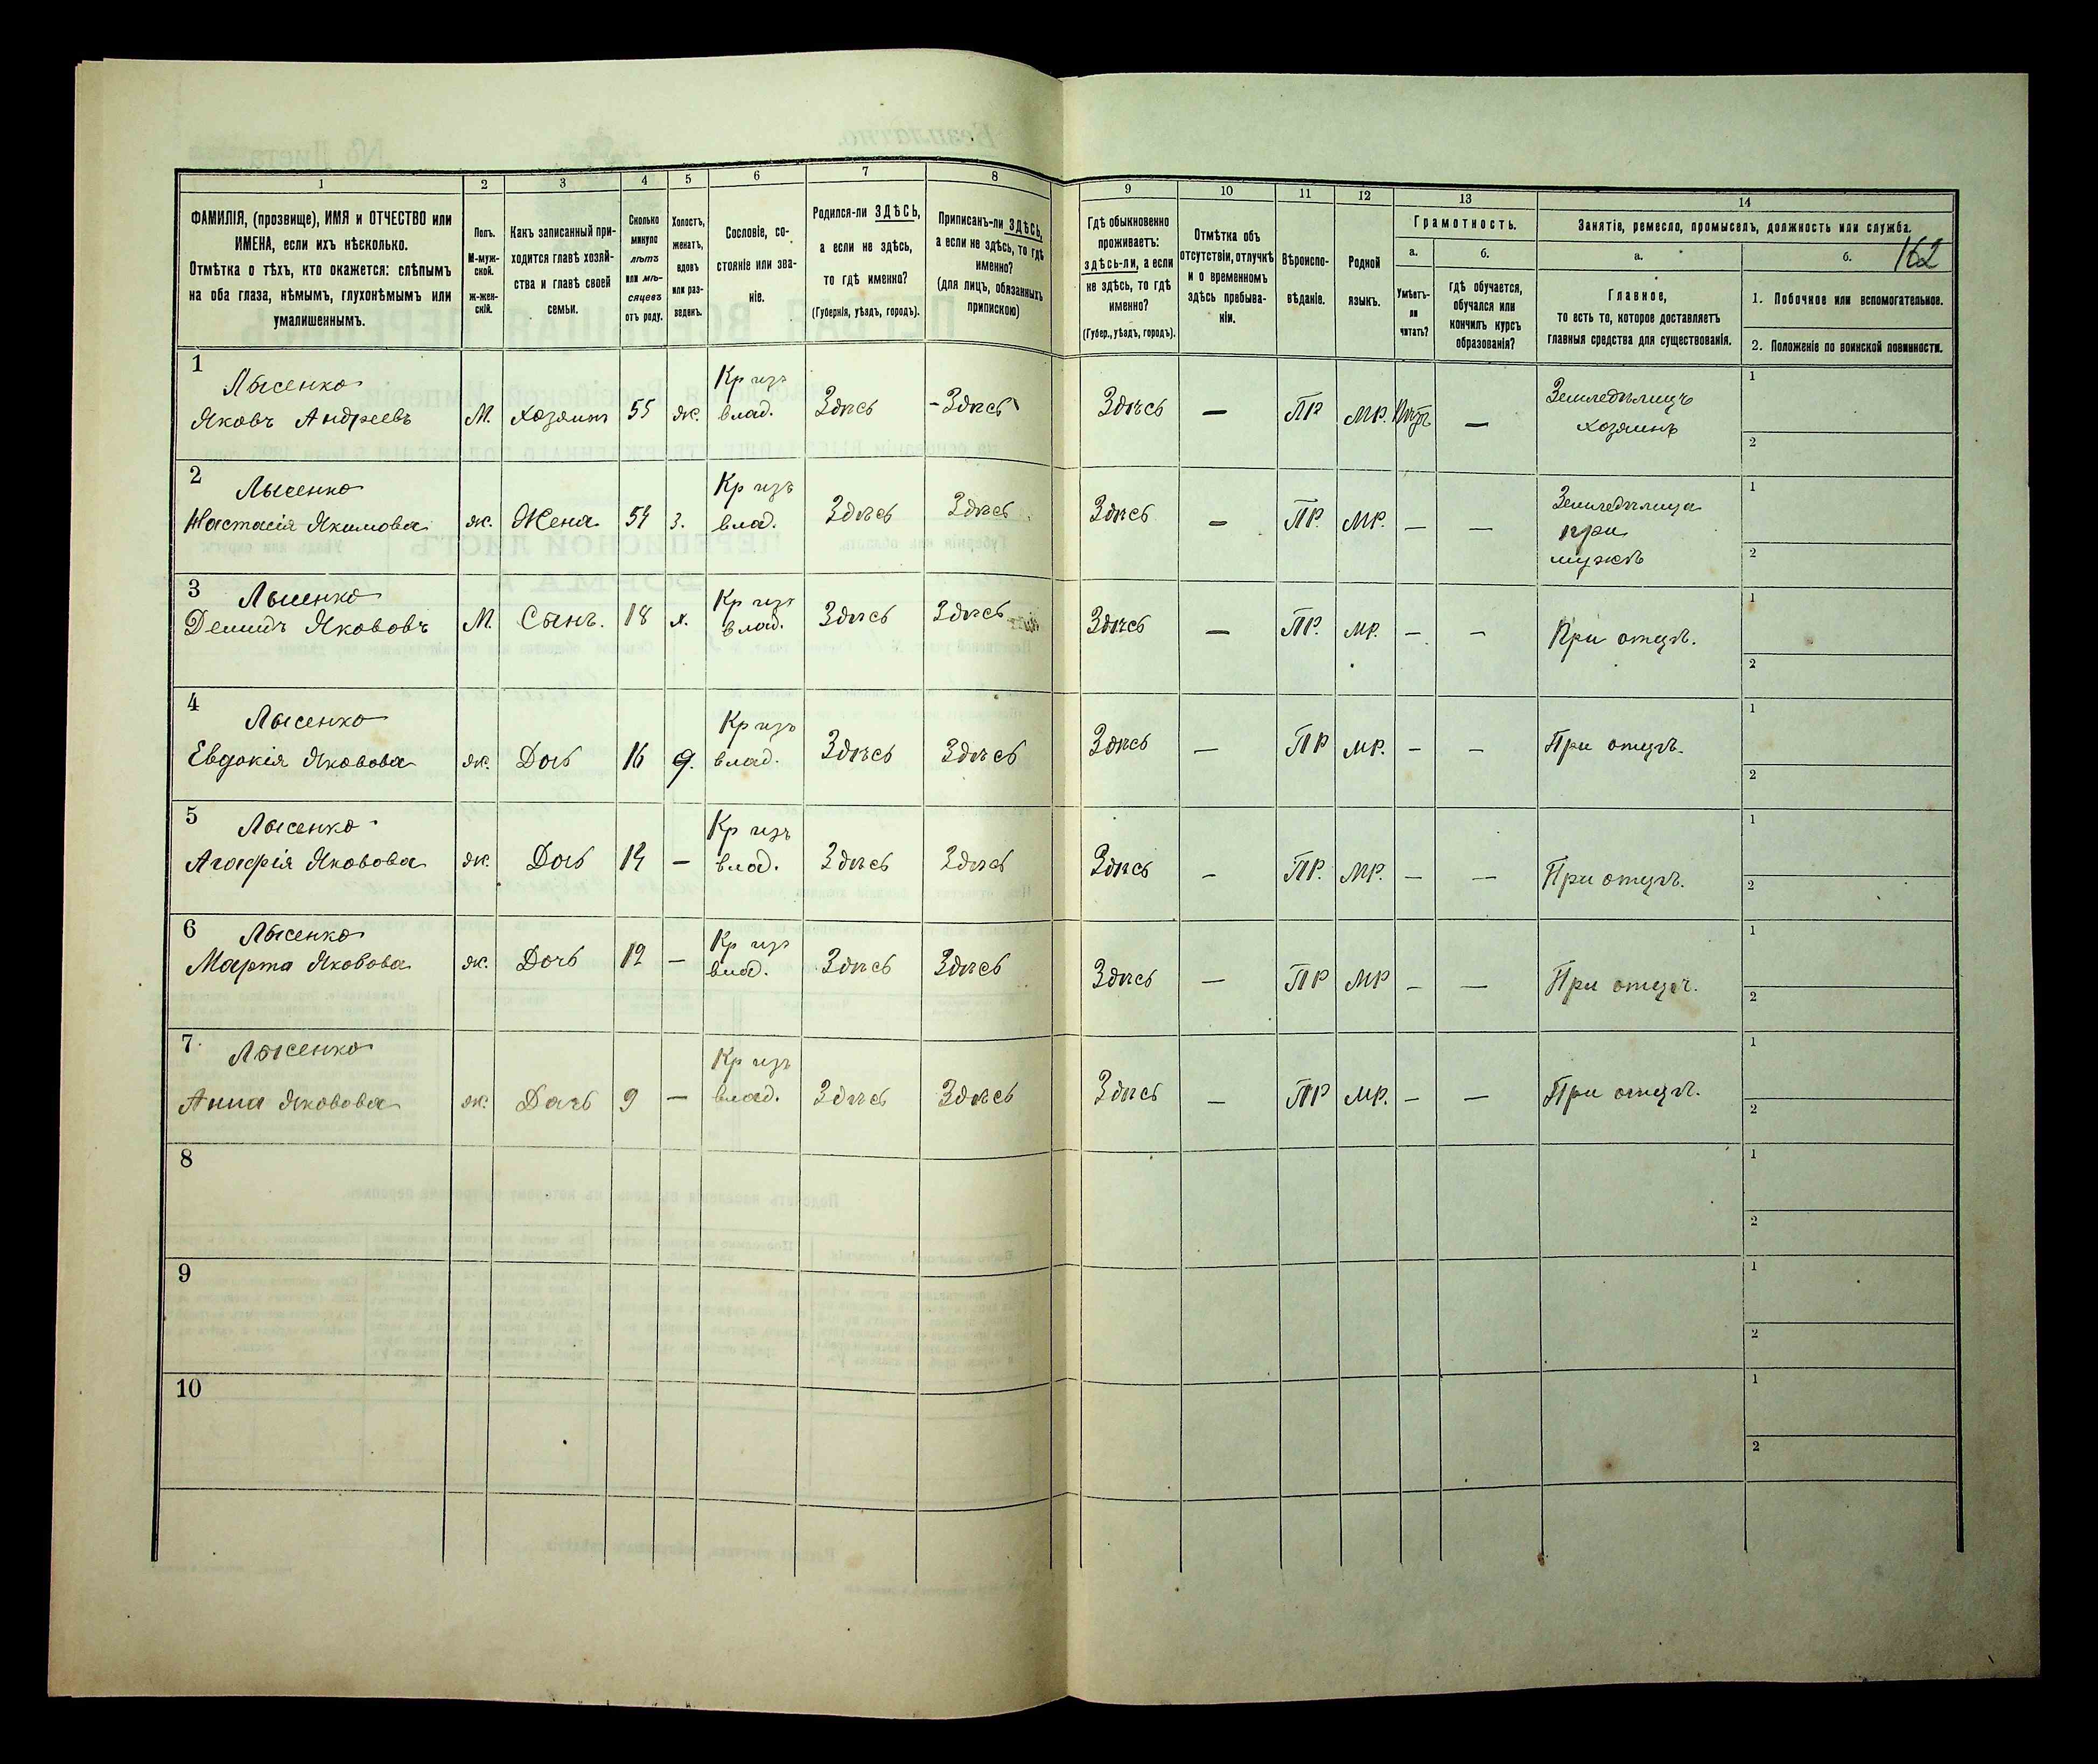 162
1 2 3 4 5 6 7 8 9 10 11 12 13 14
ФАМИЛІЯ, (прозвище), ИМЯ и ОТЧЕСТВО или
ИМЕНА, если ихъ нѣсколько.
Отмѣтка о тѣхъ, кто окажется: слѣпымъ
на оба глаза, нѣмымъ, глухонѣмымъ или
умалишеннымъ.
Полъ.
М-муж-
ской.
ж-жен-
скій.
Какъ записанный при-
ходится главѣ хозяй-
ства и главѣ своей
семьи.
Сколько
минуло
лѣтъ
или мѣ-
сяцевъ
отъ роду.
Холостъ,
женатъ,
вдовъ
или раз-
веденъ.
Сословіе, со-
стояніе или зва-
ніе.
Родился-ли ЗДѢСЬ,
а если не здѣсь,
то гдѣ именно?
(Губернія, уѣздъ, городъ).
Приписанъ-ли ЗДѢСЬ,
а если не здѣсь, то гдѣ
именно?
(для лицъ, обязанныхъ
припискою)
Гдѣ обыкновенно
проживаетъ:
здѣсь-ли, а если
не здѣсь, то гдѣ
именно?
(Губер., уѣздъ, городъ).
Отмѣтка объ
отсутствіи, отлучкѣ
и о временномъ
здѣсь пребыва-
ніи.
Вѣроиспо-
вѣданіе.
Родной
языкъ.
Грамотность.
а.
Умѣетъ-
ли
читать?
б.
гдѣ обучается,
обучался или
кончилъ курсъ
образованія?
Занятіе, ремесло, промыселъ, должность или служба.
а.
Главное,
то есть то, которое доставляетъ
главныя средства для существованія.
б.
1. Побочное или вспомогательное.
2. Положеніе по воинской повинности.
1
Лысенко Кр изъ Земледѣлецъ 1
Яковъ Андреевъ М. хозяинъ 55 ж. влад. Здѣсь - Здѣсь Здѣсь — ПР МР. — хозяинъ 2
2
Лысенко Кр изъ Земледѣлица 1
Настасія Якимова ж. Жена 54 З. влад. Здѣсь Здѣсь Здѣсь — ПР. МР. — — при
мужѣ 2
3
Лысенко Кр изъ 1
Демидъ Яковъ М. Сынъ. 18 х. влад. Здѣсь Здѣсь Здѣсь — ПР. МР. — — При отцѣ. 2
4
Лысенко Кр изъ 1
Евдокія Яковова ж. Дочь 16 д. влад. Здѣсь Здѣсь Здѣсь — ПР МР. — — При отцѣ. 2
5
Лысенко Кр изъ 1
Агафія Яковова ж. Дочь 14 — влад. Здѣсь Здѣсь Здѣсь — ПР. МР. — — При отцѣ. 2
6
Лысенко Кр изъ 1
Марта Яковова ж. Дочь 12 — влад. Здѣсь Здѣсь Здѣсь — ПР МР — — При отцѣ. 2
7
Лысенко Кр изъ 1
Анна Яковова ж. Дочь 9 — влад. Здѣсь Здѣсь Здѣсь — ПР МР. — — При отцѣ. 2
8 1
2
9 1
2
10 1
2